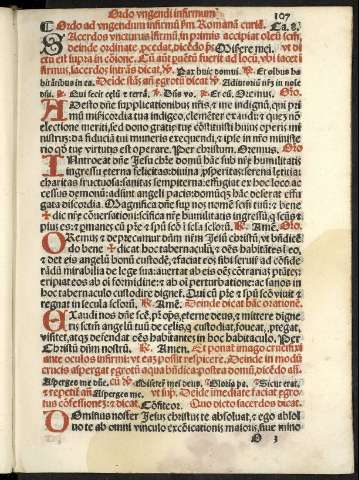 Ordo vngendi infirmum
107
Ordo ad vngendum infirmũ ẜm Romanã curiã. Ca. 8.
SAcerdos vncturus ifirmũ, in primis accipiat oleũ scm̃,
deinde ordinate ꝓcedat, dicẽdo ps̃. Miserere mei. vt di
ctũ est supra in cõione. Cũ aũt puẽtũ fuerit ad locũ, vbi iacet i
firmus, sacerdos intrãs dicat. ℣. Pax huic domui. ℟. Et oĩbus ha
bitãtibus in ea. Deide stãs añ egrotũ dicat ℣. Adiutoriũ nr̃z in noĩe
dñi. ℟. Qui fecit celũ ⁊ terrã. ℣. Dñs vo. ℟. Et cũ. Oremus. Oro.
ADesto dñe supplicationibus nr̃is, ⁊ me indignũ, qui pri
mũ misericordia tua indigeo, clemẽter exaudi: ⁊ quez nõ
electione meriti, sed dono gratie tue cõstituisti huius operis mi
nistruz: da fiduciã tui muneris exequendi, ⁊ ipse in nr̃o ministe
rio qd̃ tue virtutis est operare. Per christum. Oremus. Oro.
INtroeat dñe Jesu chr̃e domũ hãc sub nr̃e humilitatis
ingressu, eterna felicitas: diuina ꝓsperitas: serena letitia:
charitas fructuosa: sanitas sempiterna: effugiat ex hoc loco ac
cessus demonũ: adsint angeli pacis: domũqz hãc deserat effre
gata discordia. Magnifica dñe sup nos nomẽ scm̃ tuũ: ⁊ bene
✠ dic nr̃e cõuersationi: scifica nr̃e humilitatis ingressũ, q scũs ⁊
pius es: ⁊ ꝑmanes cũ pr̃e ⁊ spũ scõ ĩ scla sclorũ. ℟. Amẽ. Oro.
ORemus ⁊ deprecemur dñm nr̃m Jesũ christũ, vt bñdicẽ
do bene ✠ dicat hoc tabernaculũ, ⁊ oẽs habitãtes ĩ eo,
⁊ det eis angelũ bonũ custodẽ, ⁊ faciat eos sibi seruire ad cõside
rãdũ mirabilia de lege sua: auertat ab eis oẽs cõtrarias ptãtes:
eripiat eos ab oĩ formidine: ⁊ ab oĩ perturbatione: ac sanos in
hoc tabernaculo custodire dignet. Qui cũ pr̃e ⁊ spũ scõ viuit ⁊
regnat in secula sclorũ. ℟. Amẽ. Deinde dicat hãc orationẽ.
EXaudi nos dñe scẽ, pr̃ oĩps, eterne deus, ⁊ mittere digne
ris scm̃ angelũ tuũ de celis, q custodiat, foueat, ꝓtegat,
visitet, atqz defendat oẽs habitantes in hoc habitaculo. Per
Christũ dñm nostrũ. ℟. Amen. Et ponat imaginẽ crucifixi
ante oculos infirmi: vt eaz possit respicere. Deinde in modũ
crucis aspergat egrotũ aqua bñdicta: postea domũ, dicẽdo añ.
Asperges me dñe. cũ ps̃. Miserere mei deus. Gloria pa. Sicut erat.
⁊ repetit añ. Asperges me. vt sup. Deinde immediate faciat egro
tus cõfessionez: ⁊ dicat. Cõfiteor. Quo dicto sacerdos dicat.
DOminus noster Jesus christus te absoluat, ⁊ ego absol
uo te ab omni vinculo excõicationis maioris, siue mino
O 3